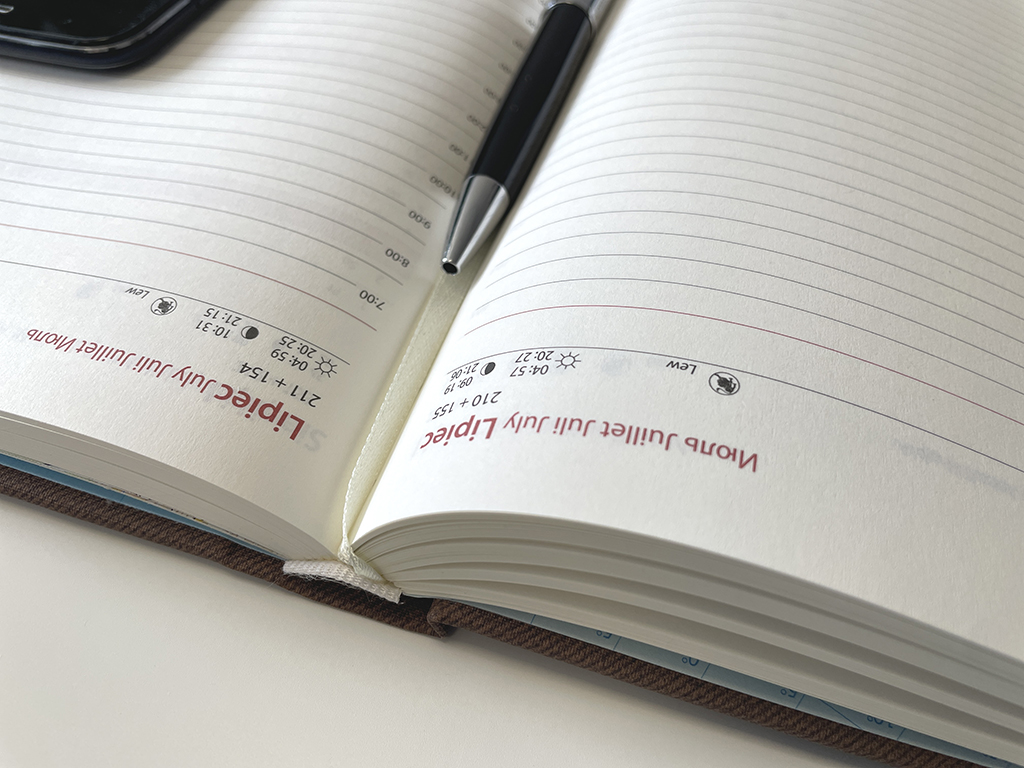 Июль Juillet Juli July Lipiec
210 + 155
04:57 09:19
Lew 20:27 21:06
Lipiec July Juli Juillet Июль
211 + 154
04:59 10:31
20:25 21:15 Lew
7:00
8:00
9:00
10:00